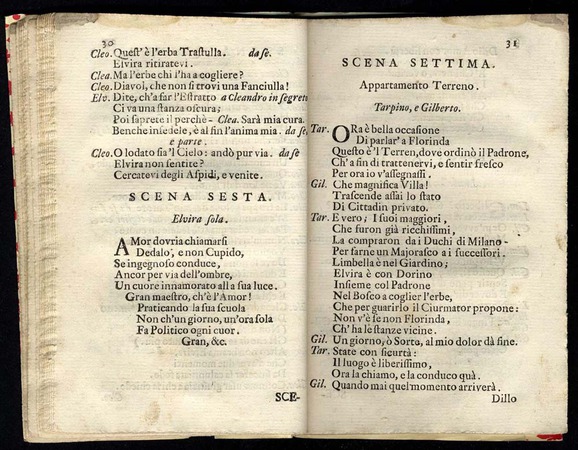 30
Cleo. Quest' è l'erba Trastulla. da se.
Elvira ritiratevi.
Clea. Ma l'erbe chi l'ha a cogliere?
Cleo. Diavol, che non si trovi una Fanciulla!
Elv. Dite, ch'a far l'Estratto a Cleandro in segreto
Ci va una stanza oscura;
Poi saprete il perchè - Clea. Sarà mia cura.
Benche infedele, è al fin l'anima mia. da se,
e parte.
Cleo. O lodato sia'l Cielo: andò pur via. da se
Elvira non sentite?
Cercatevi degli Aspidi, e venite.
SCENA SESTA.
Elvira sola.
AMor dovria chiamarsi
Dedalo, e non Cupido,
Se ingegnoso conduce,
Ancor per via dell'ombre,
Un cuore innamorato alla sua luce.
Gran maestro, ch'è l'Amor!
Praticando la sua scuola
Non ch'un giorno, un'ora sola
Fa Politico ogni cuor.
Gran, &c.
SCE-
31
SCENA SETTIMA.
Appartamento Terreno.
Tarpino, e Gilberto.
Tar. ORa è bella occasione
Di parlar' a Florinda
Questo è'l Terren, dove ordinò il Padrone,
Ch'a fin di trattenervi, e sentir fresco
Per ora io v'assegnassi.
Gil. Che magnifica Villa!
Trascende assai lo stato
Di Cittadin privato.
Tar. E vero; I suoi maggiori,
Che furon già ricchissimi,
La compraron da i Duchi di Milano -
Per farne un Majorasco a i successori.
Limbella è nel Giardino;
Elvira è con Dorino
Insieme col Padrone
Nel Bosco a coglier l'erbe,
Che per guarirlo il Ciurmator propone:
Non v'è se non Florinda,
Ch'ha le stanze vicine.
Gil. Un giorno, ò Sorte, al mio dolor dà fine.
Tar. State con sicurtà:
Il luogo è liberissimo,
Ora la chiamo, e la conduco quà.
Gil. Quando mai quel momento arriverà.
Dillo